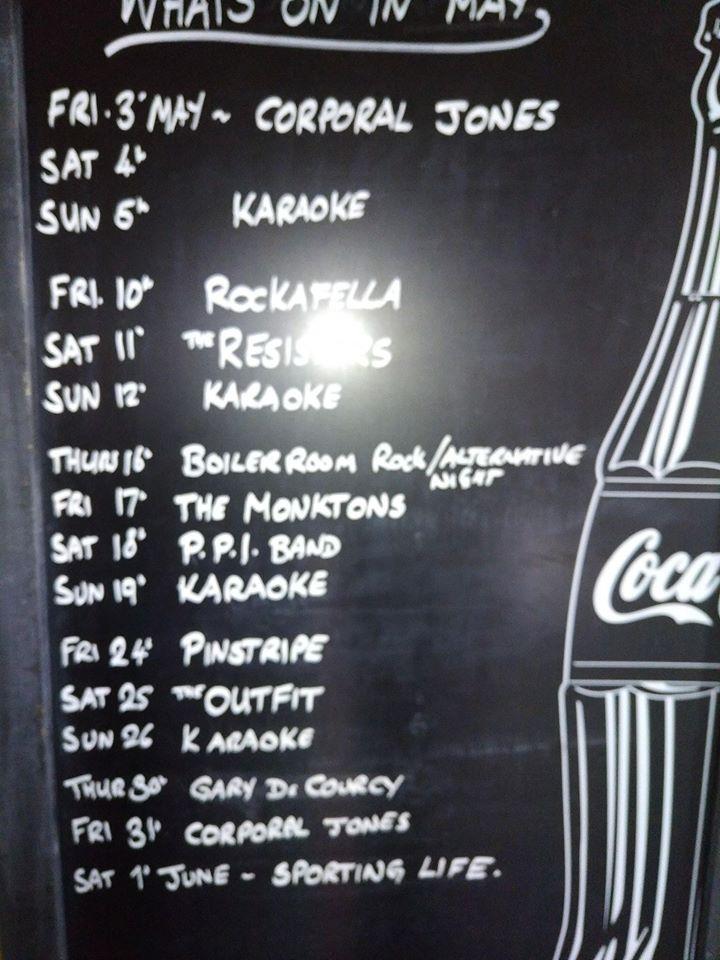 WHATS ON IN MAY
FRI. 3 MAY ~ CORPORAL JONES
SAT 4th
SUN 5th KARAOKE
FRI. 10th ROCKAFELLA
SAT 11th THE
SUN 12th KARAOKE
THURS 16th BOILER ROOM ROCK/ALTERNATIVE
NIGHT
FRI 17th THE MONKTONS
SAT 18th P.P.I. BAND
SUN 19th KARAOKE
FRI 24th PINSTRIPE
SAT 25 THE OUTFIT
SUN 26 KARAOKE
THUR 30th GARY De COURCY
FRI 31st CORPORAL JONES
SAT 1st JUNE - SPORTING LIFE.
Coca